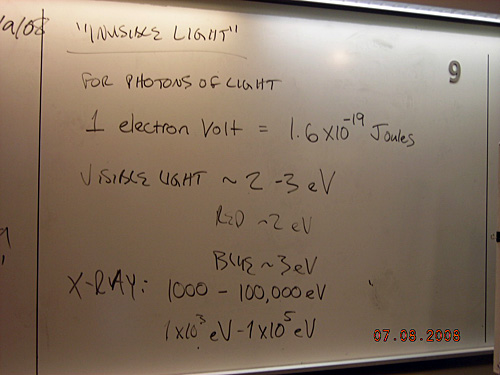 "INVISIBLE LIGHT"
9
FOR PHOTONS OF LIGHT
1 electron Volt = 1.6x10^-19 Joules
VISIBLE LIGHT ~ 2 - 3 eV
RED ~ 2 eV
BLUE ~ 3 eV
X-RAY: 1000 - 100,000 eV
1x10^3 eV - 1x10^5 eV
07.09.2008